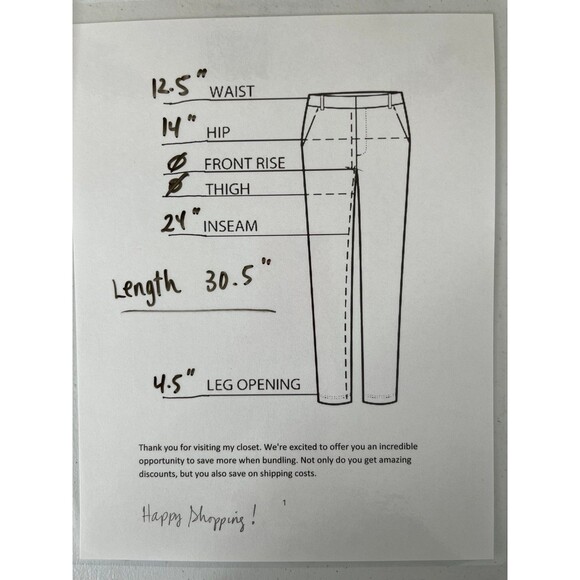 12.5" WAIST
14" HIP
Ø FRONT RISE
Ø THIGH
24" INSEAM
Length 30.5"
4.5" LEG OPENING
Thank you for visiting my closet. We're excited to offer you an incredible
opportunity to save more when bundling. Not only do you get amazing
discounts, but you also save on shipping costs.
1
Happy Shopping!